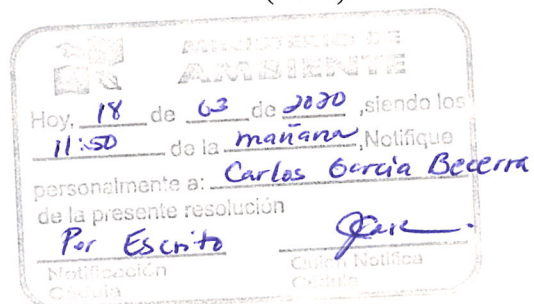 MINISTERIO DE
AMBIENTE
Hoy, 18 de 03 de 2020, siendo los
11:50 de la mañana, Notifique
personalmente a: Carlos Garcia Becerra
de la presente resolución
Por Escrito
Notificación Quien Notifica
Cédula Cédula